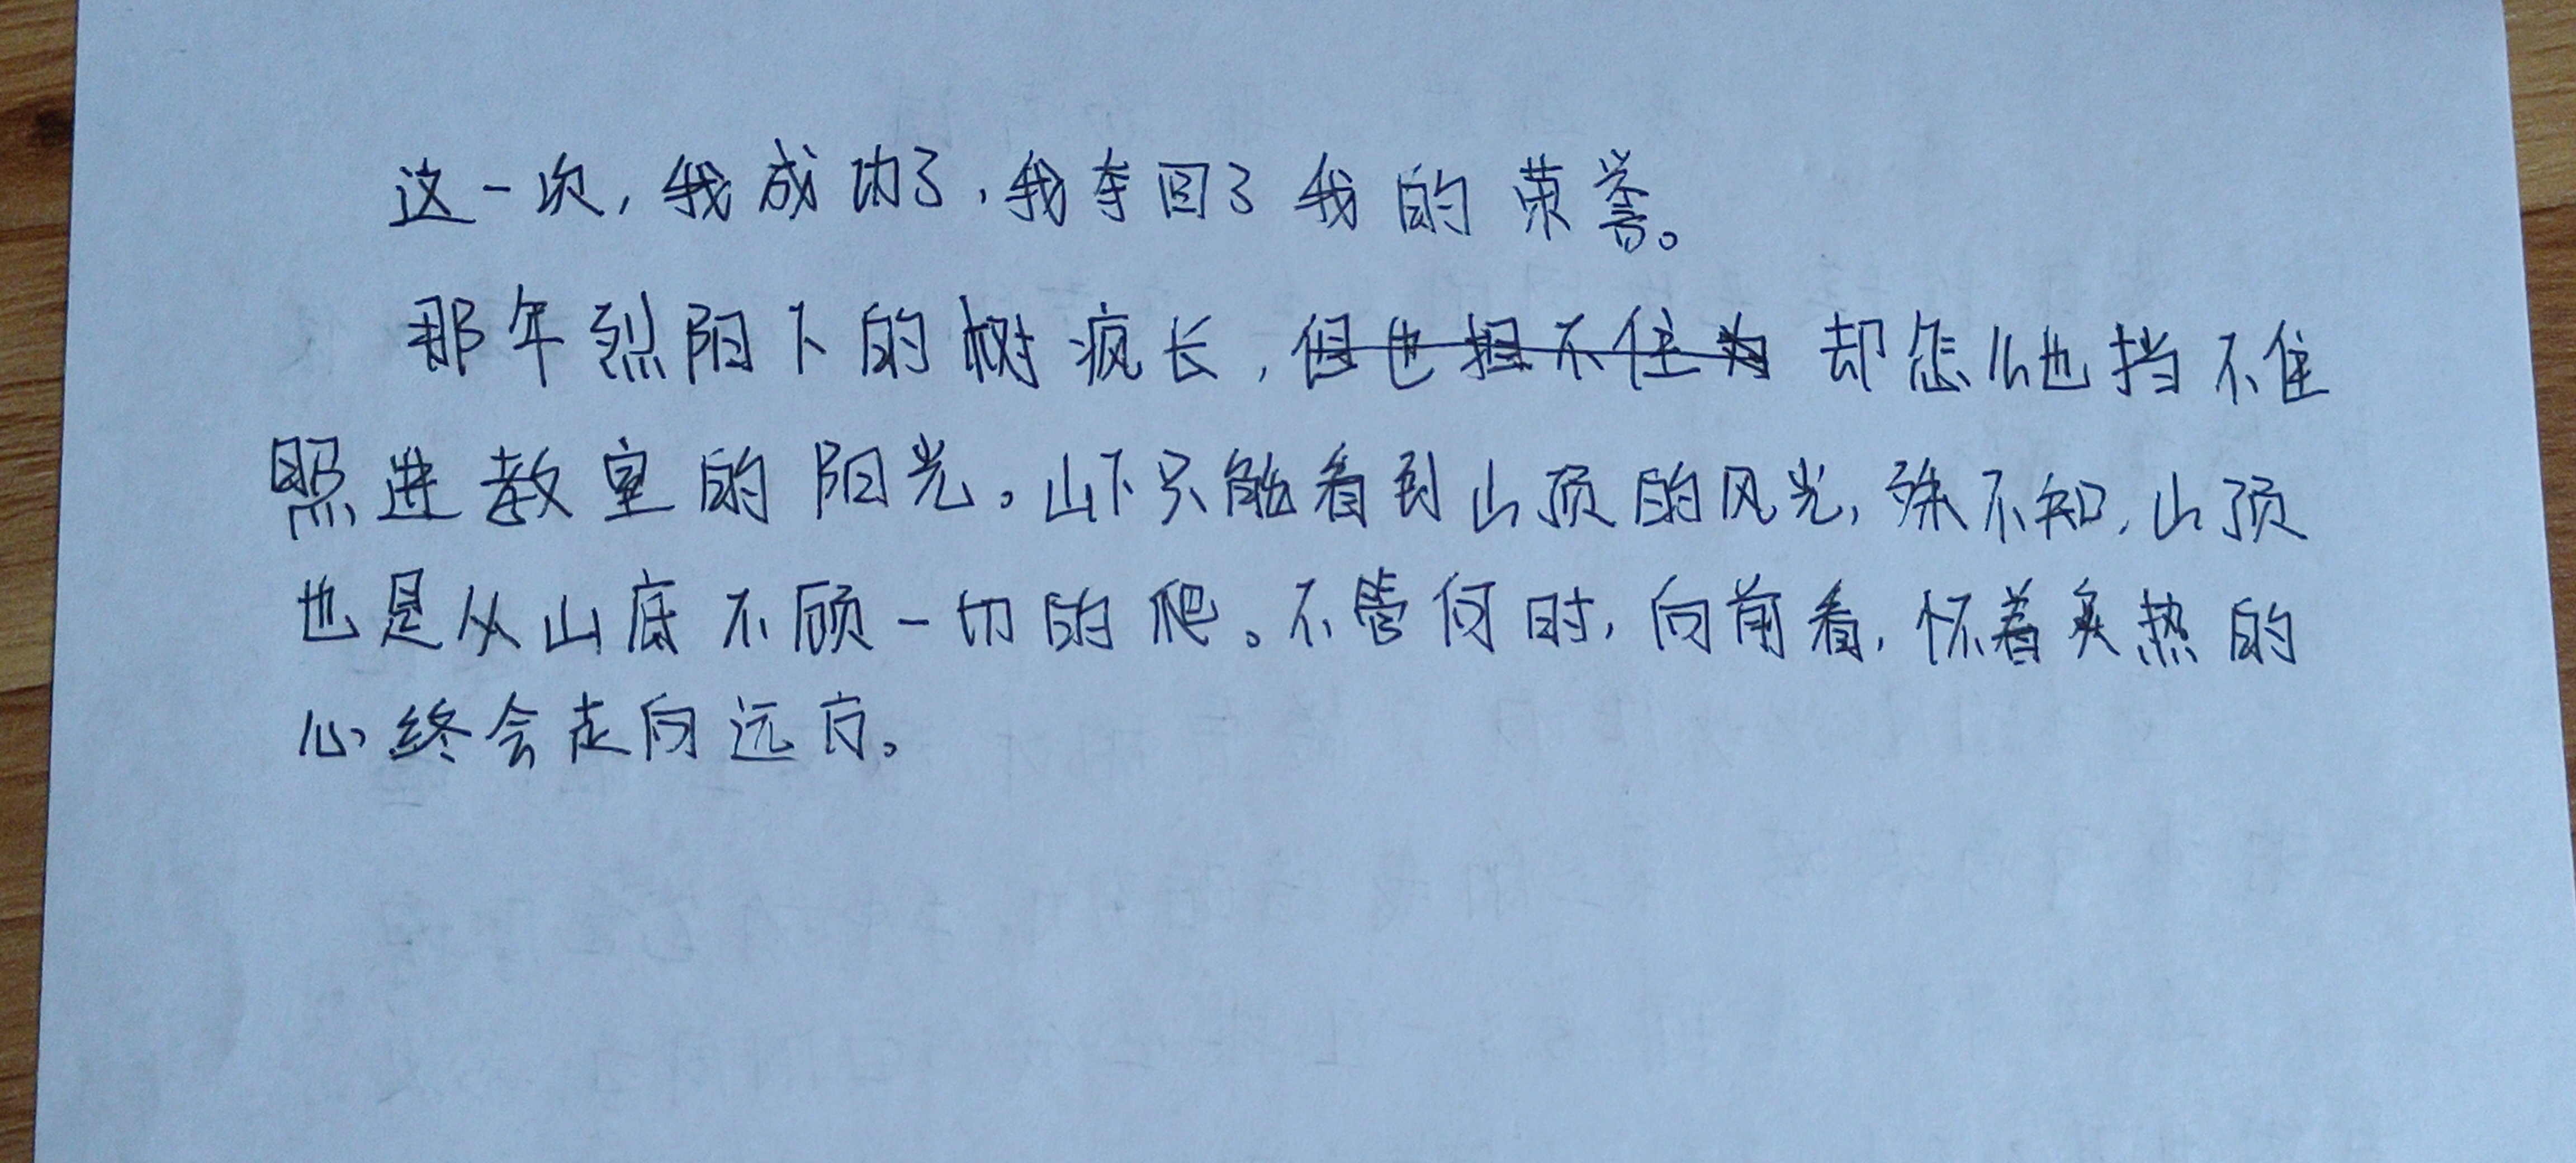 这一次，我成功了，我夺回了我的荣誉。
那年烈阳下的树疯长，却怎么也挡不住
照进教室的阳光。山下只能看到山顶的风光，殊不知，山顶
也是从山底不顾一切的爬。不管何时，向前看，怀着炙热的
心终会走向远方。